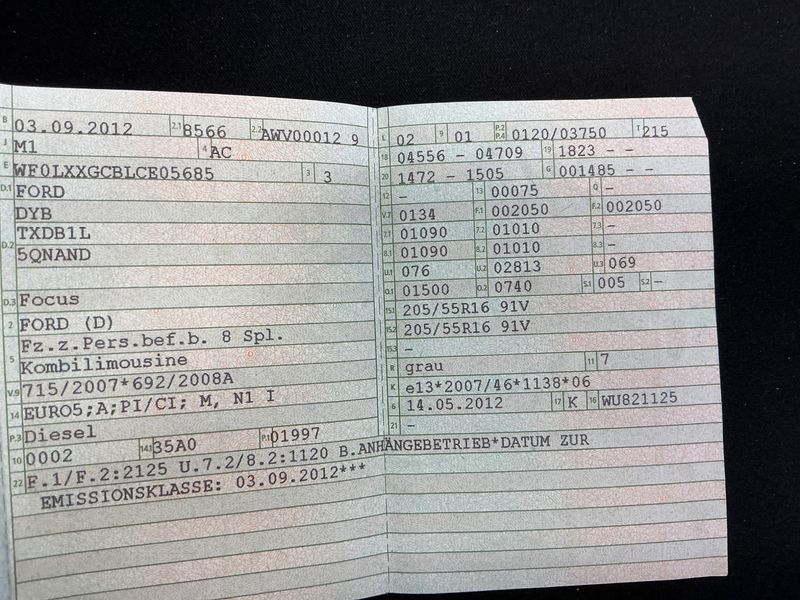 B 03.09.2012 2.1 8566 2.2 AWV00012 9
J M1 4 AC
E WF0LXXGCBLCE05685 3 3
D.1 FORD
DYB
D.2 TXDB1L
5QNAND
D.3 Focus
2 FORD (D)
Fz.z.Pers.bef.b. 8 Spl.
5 Kombilimousine
V.9 715/2007*692/2008A
14 EURO5;A;PI/CI; M, N1 I
P.3 Diesel
10 0002 14.1 35A0 P.1 01997
22 F.1/F.2:2125 U.7.2/8.2:1120 B.ANHÄNGEBETRIEB*DATUM ZUR
EMISSIONSKLASSE: 03.09.2012***
L 02 9 01 P.2 P.4 0120/03750 T 215
18 04556 - 04709 19 1823 - -
20 1472 - 1505 G 001485 - -
12 - 13 00075 Q -
V.7 0134 F.1 002050 F.2 002050
7.1 01090 7.2 01010 7.3 -
8.1 01090 8.2 01010 8.3 -
U.1 076 U.2 02813 U.3 069
O.1 01500 O.2 0740 S.1 005 S.2 -
15.1 205/55R16 91V
15.2 205/55R16 91V
15.3 -
R grau 11 7
K e13*2007/46*1138*06
6 14.05.2012 17 K 16 WU821125
21 -